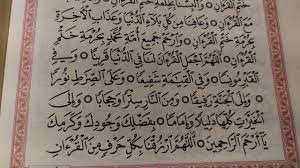 خَتْمِ الْقُرْءَانِ ۞ وَعَافِنَا مِنْ كُلِّ بَلَاءِ الدُّنْيَا وَعَذَابِ الْاٰخِرَةِ
بِحُرْمَةِ خَتْمِ الْقُرْءَانِ ۞ وَارْحَمْ جَمِيعَ اُمَّةِ مُحَمَّدٍ بِحُرْمَةِ خَتْمِ
الْقُرْءَانِ ۞ اَللّٰهُمَّ اجْعَلِ الْقُرْءَانَ لَنَا فِي الدُّنْيَا قَرِينًا ۞ وَفِي
الْقَبْرِ مُونِسًا ۞ وَفِي الْقِيٰمَةِ شَفِيعًا ۞ وَعَلَى الصِّرَاطِ نُورًا
۞ وَاِلَى الْجَنَّةِ رَفِيقًا ۞ وَمِنَ النَّارِ سِتْرًا وَحِجَابًا ۞ وَاِلَى
الْخَيْرَاتِ كُلِّهَا دَلِيلًا وَاِمَامًا ۞ بِفَضْلِكَ وَجُودِكَ وَكَرَمِكَ
يَا اَرْحَمَ الرَّاحِمِينَ ۞ اَللّٰهُمَّ ارْزُقْنَا بِكُلِّ حَرْفٍ مِنَ الْقُرْءَانِ